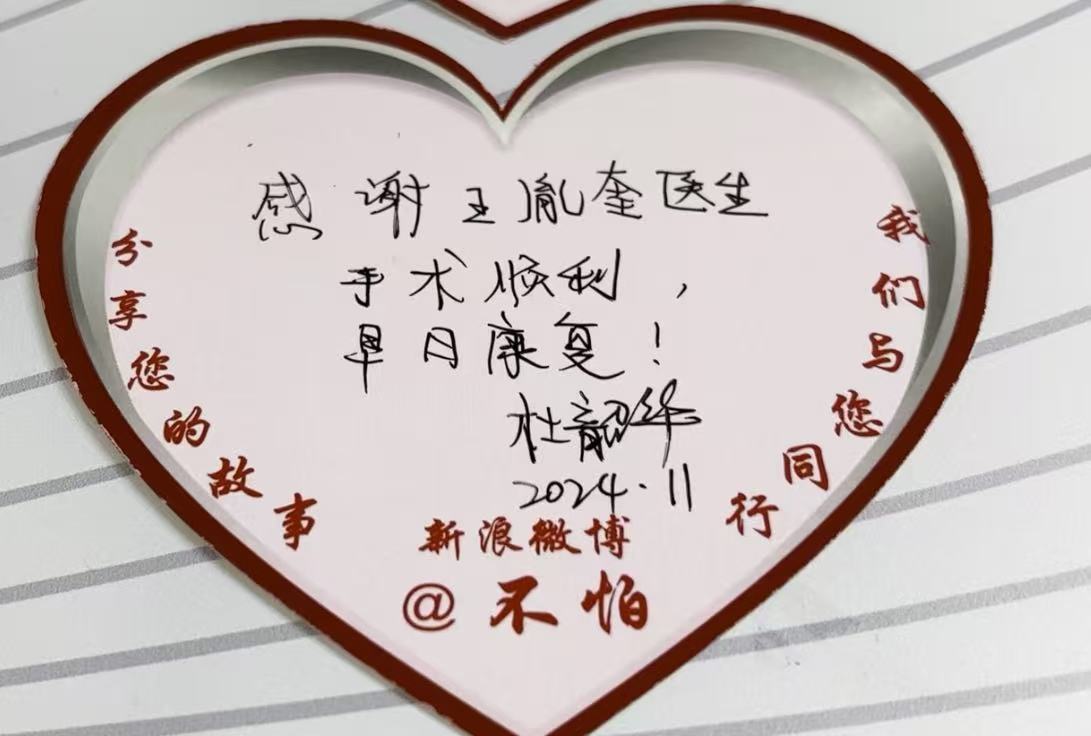 感谢王胤奎医生
手术顺利，
早日康复！
杜韶华
2024.11
分享您的故事
我们与您同行
新浪微博
@不怕